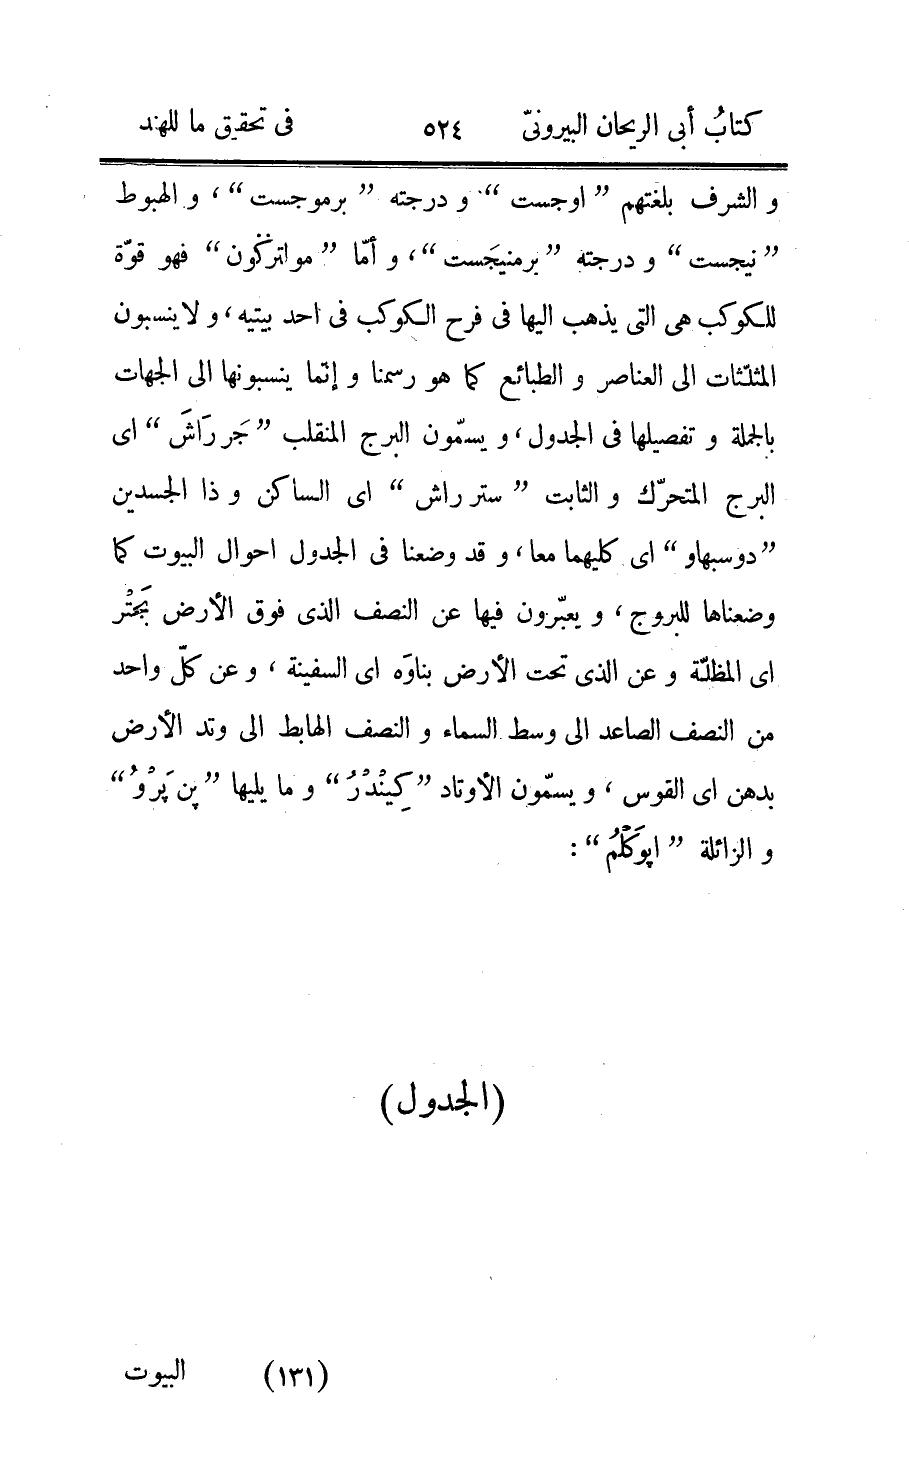 كتابُ أبى الريحان البيرونىّ ٥٢٤ فى تحقيق ما للهند
و الشرف بلغتهم ”اوجست“ و درجته ”برموجست“، و الهبوط
”نيجست“ و درجته ”برمنيَجست“، و أمّا ”مولتركون“ فهو قوّة
للكوكب هى التى يذهب اليها فى فرح الكوكب فى احد بيتيه، و لا ينسبون
المثلّثات الى العناصر و الطبائع كما هو رسمنا و إنّما ينسبونها الى الجهات
بالجملة و تفصيلها فى الجدول، و يسمّون البرج المنقلب ”جَر رَاشَ“ اى
البرج المتحرّك و الثابت ”ستر راش“ اى الساكن و ذا الجسدين
”دوسبهاو“ اى كليهما معا، و قد وضعنا فى الجدول احوال البيوت كما
وضعناها للبروج، و يعبّرون فيها عن النصف الذى فوق الأرض بَجَتْر
اى المظلّة و عن الذى تحت الأرض بناوَه اى السفينة، و عن كلّ واحد
من النصف الصاعد الى وسط السماء و النصف الهابط الى وتد الأرض
بدهن اى القوس، و يسمّون الأوتاد ”كِيَنْدْرُ“ و ما يليها ”پن پَرْوُ“
و الزائلة ”اپوَكْلْمُ“:
(الجدول)
(١٣١) البيوت